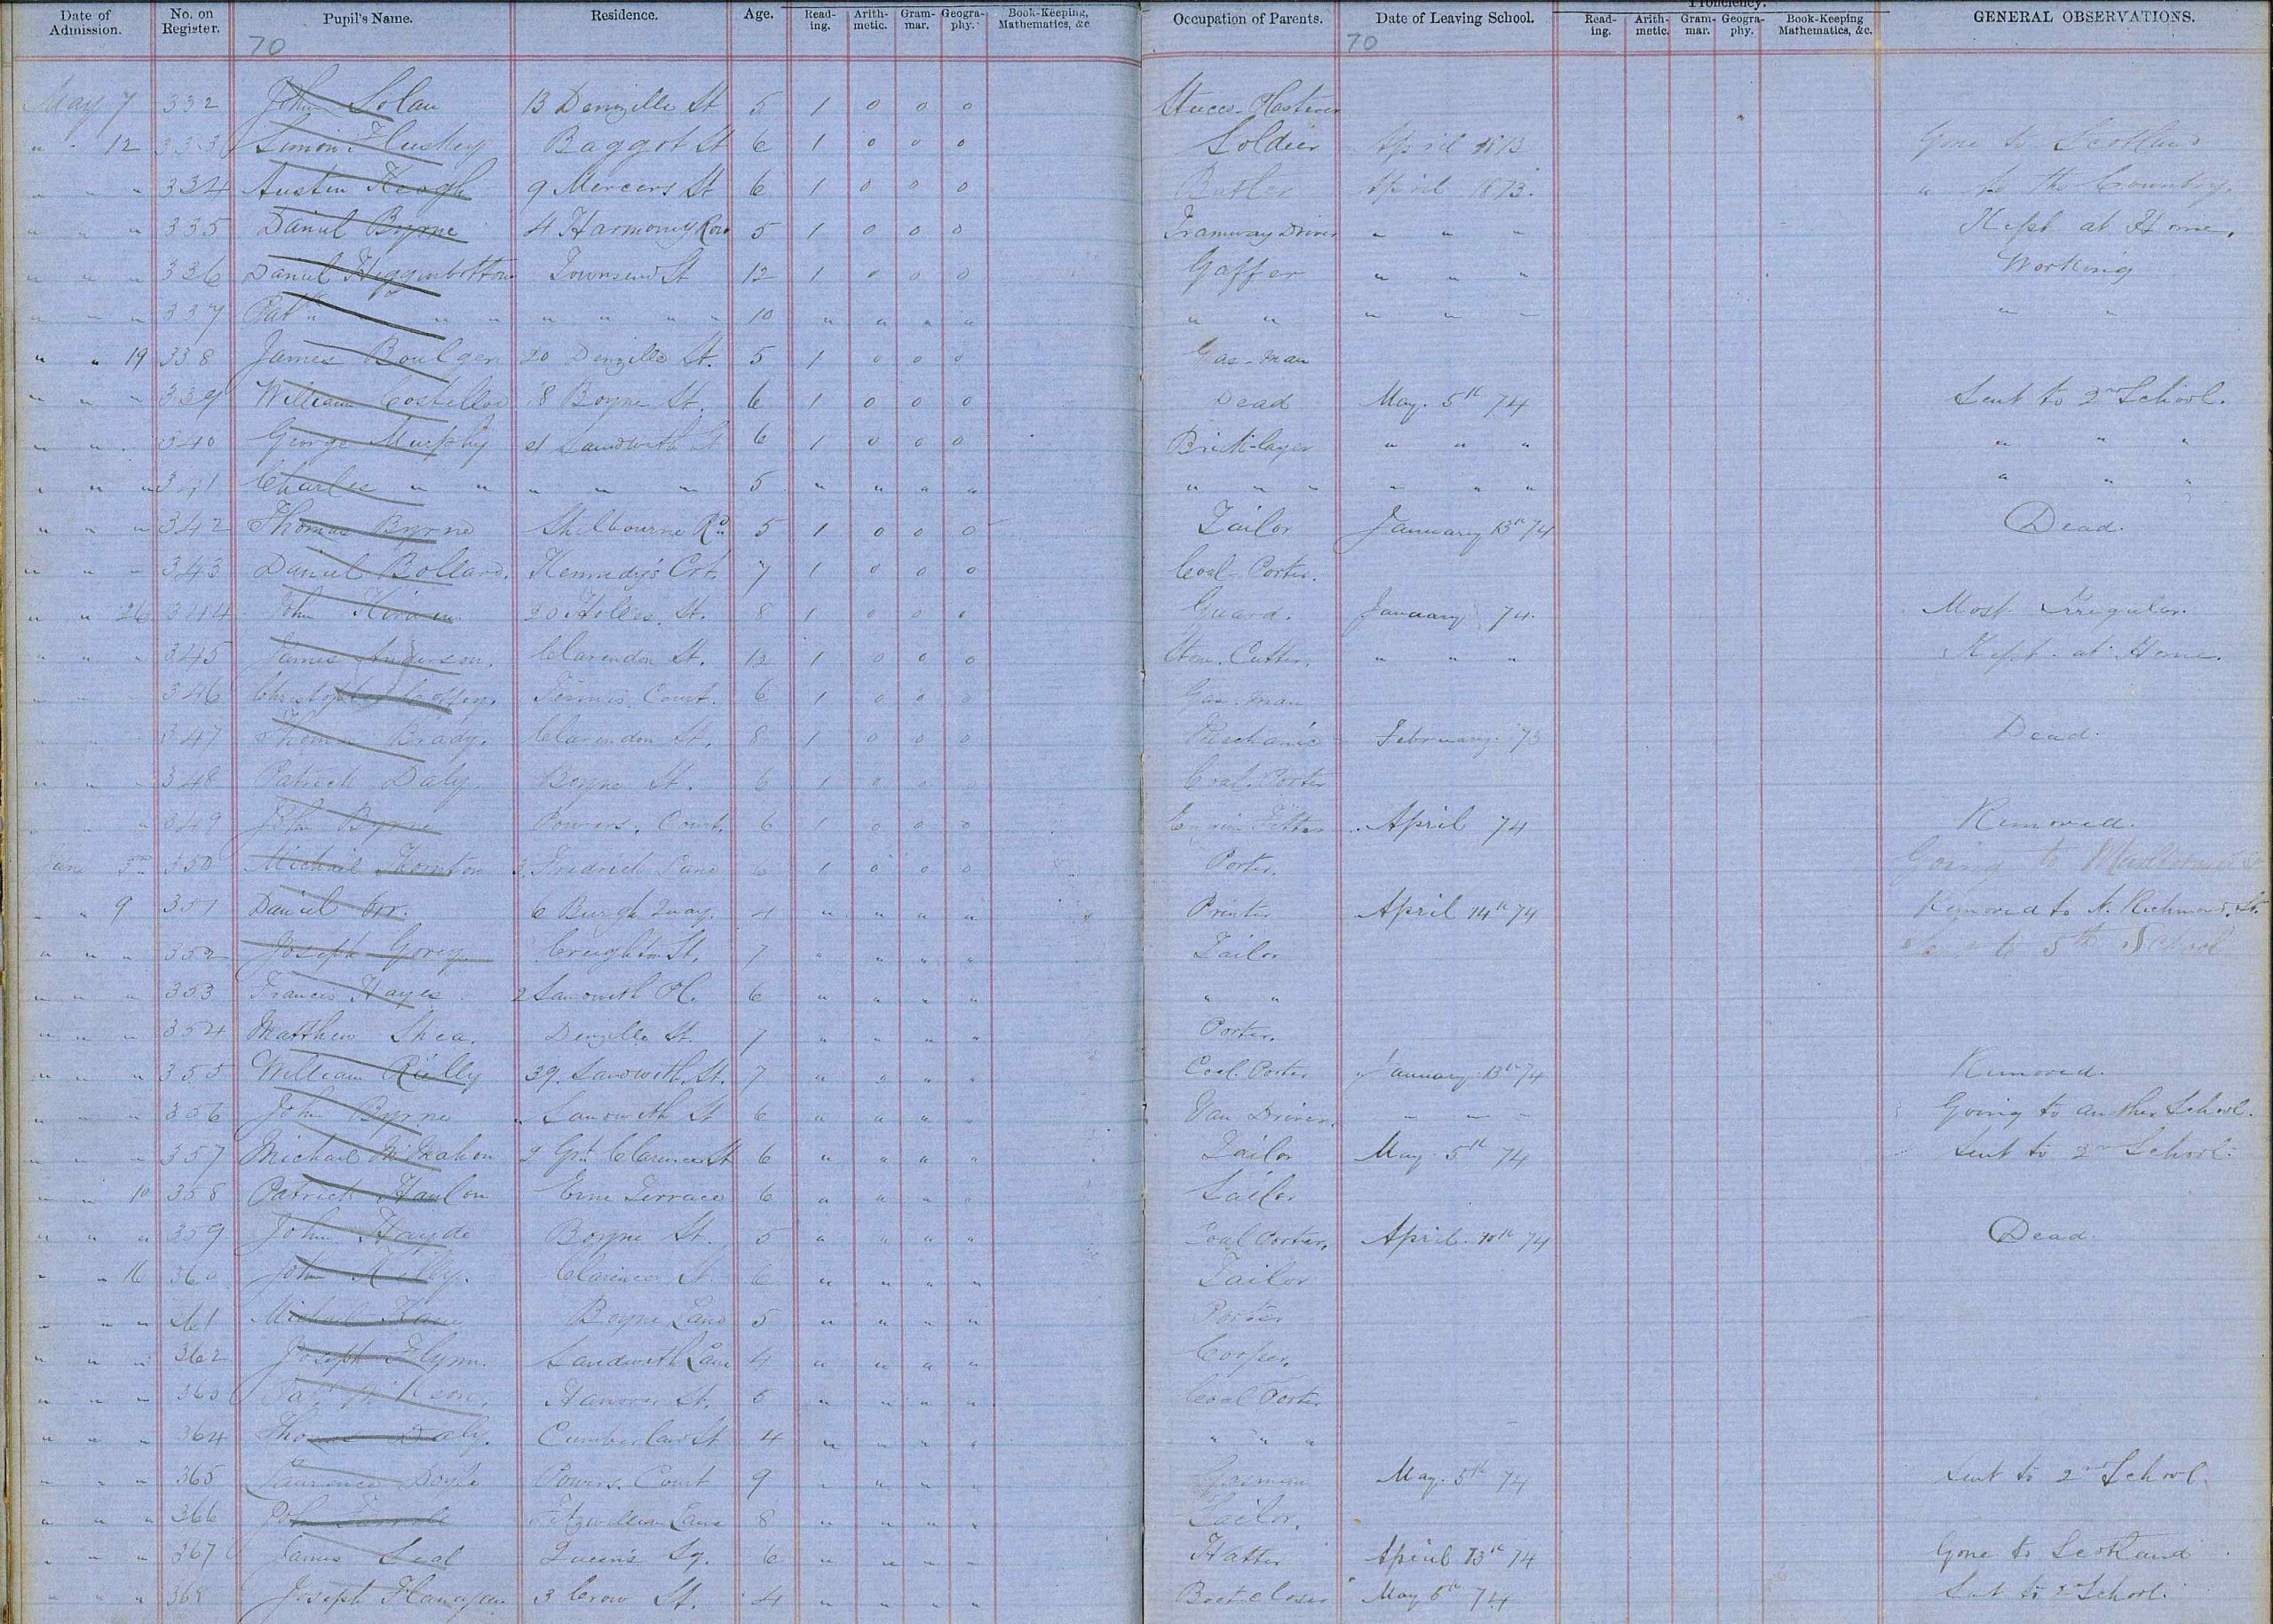 Date of Admission. No. on Register. Pupil's Name. Residence. Age. Read-ing. Arith-metic. Gram-mar. Geogra-phy. Book-Keeping, Mathematics, &c Occupation of Parents. Date of Leaving School. Proficiency. Read-ing. Arith-metic. Gram-mar. Geogra-phy. Book-Keeping Mathematics, &c. GENERAL OBSERVATIONS.
70 70
May 7 332 John Solan 13 Denzille St 5 1 0 0 0 Stucco-Plasterer
" " 12 333 Simon Fluskey Baggot St 6 1 0 0 0 Soldier April 1873 Gone to Scotland
" " " 334 Austin Keogh 9 Mercers St 6 1 0 0 0 Butler April 1873. " to the Country.
" " " 335 Daniel Byrne 4 Harmony Row 5 1 0 0 0 Tramway Driver " " " Kept at Home.
" " " 336 Daniel Higginbottom Townsend St 12 1 0 0 0 Gaffer " " " Working
" " " 337 Patk " " " " " " " 10 " " " " " " " " " " "
" " 19 338 James Boulger 20 Denzille St. 5 1 0 0 0 Gas-man
" " " 339 William Costelloe 8 Boyne St. 6 1 0 0 0 Dead May. 5th 74 Sent to 2nd School.
" " " 340 George Murphy 21 Sandwith St 6 1 0 0 0 Brick-layer " " " " " "
" " " 341 Charles " " " " " 5 " " " " " " " " " " " " "
" " " 342 Thomas Byrne Shelbourne Rd 5 1 0 0 0 Tailor January 13th 74 Dead.
" " " 343 Daniel Bollard. Kennedy's Crt. 7 1 0 0 0 Coal-Porter.
" " 26 344 John Kirwan 20 Holles. St. 8 1 0 0 0 Guard. January 74. Most Irregular.
" " " 345 James Anderson. Clarendon St. 12 1 0 0 0 Stone. Cutter. " " " Kept at Home.
" " " 346 Christopher Tennis Court. 6 1 0 0 0 Gas-man
" " " 347 Thomas Brady. Clarendon St. 8 1 0 0 0 Mechanic February. 73 Dead.
" " " 348 Patrick Daly. Boyne St. 6 1 0 0 0 Coal. Porter
" " " 349 John Byrne Powers. Court. 6 1 0 0 0 Engine Fitter April 74 Removed.
June 3rd 350 Michael Thornton 3. Fredrick Lane 6 1 0 0 0 Porter. Going to
" " 9 351 Daniel Orr. 6 Burgh Quay. 4 " " " " Printer April 14th 74 Removed to N. Richmond. St.
" " " 352 Joseph Gorey Creighton St. 7 " " " " Tailor Sent to 5th School
" " " 353 Francis Hayes. 2 Sandwith Pl. 6 " " " " " "
" " " 354 Matthew Shea. Denzille St. 7 " " " " Porter.
" " " 355 William Rielly 39. Sandwith. St. 7 " " " " Coal. Porter January 13th 74 Removed.
" " " 356 John Byrne " Sandwith St 6 " " " " Van Driver. " " " Going to another School.
" " " 357 Michael McMahon 2 Gt. Clarence St 6 " " " " Tailor May. 5th 74 Sent to 2nd School.
" " 10 358 Patrick Hanlon Erne Terrace 6 " " " " Sailor
" " " 359 John Hayde Boyne St. 5 " " " " Coal Porter. April. 10th 74 Dead
" " 16 360 John Kelly. Clarence St. 6 " " " " Tailor
" " " 361 Michael Boyne Lane 5 " " " " Porter
" " " 362 Joseph Flynn. Sandwith Lane 4 " " " " Cooper.
" " " 363 Hanover St. 5 " " " " Coal Porter
" " " 364 Thomas Daly. Cumberland St 4 " " " " " " "
" " " 365 Laurence Doyle Powers. Court 9 " " " " Gasman May. 5th 74 Sent to 2nd School.
" " " 366 John Farrell Fitzwilliam Lane 8 " " " " Sailor.
" " " 367 James Seal Queen's Sq. 6 " " " " Hatter April 13th 74 Gone to Scotland
" " " 368 Joseph Flanagan 3 Crow St. 4 " " " " Boot Closer May 5th 74 Sent to 2nd School.